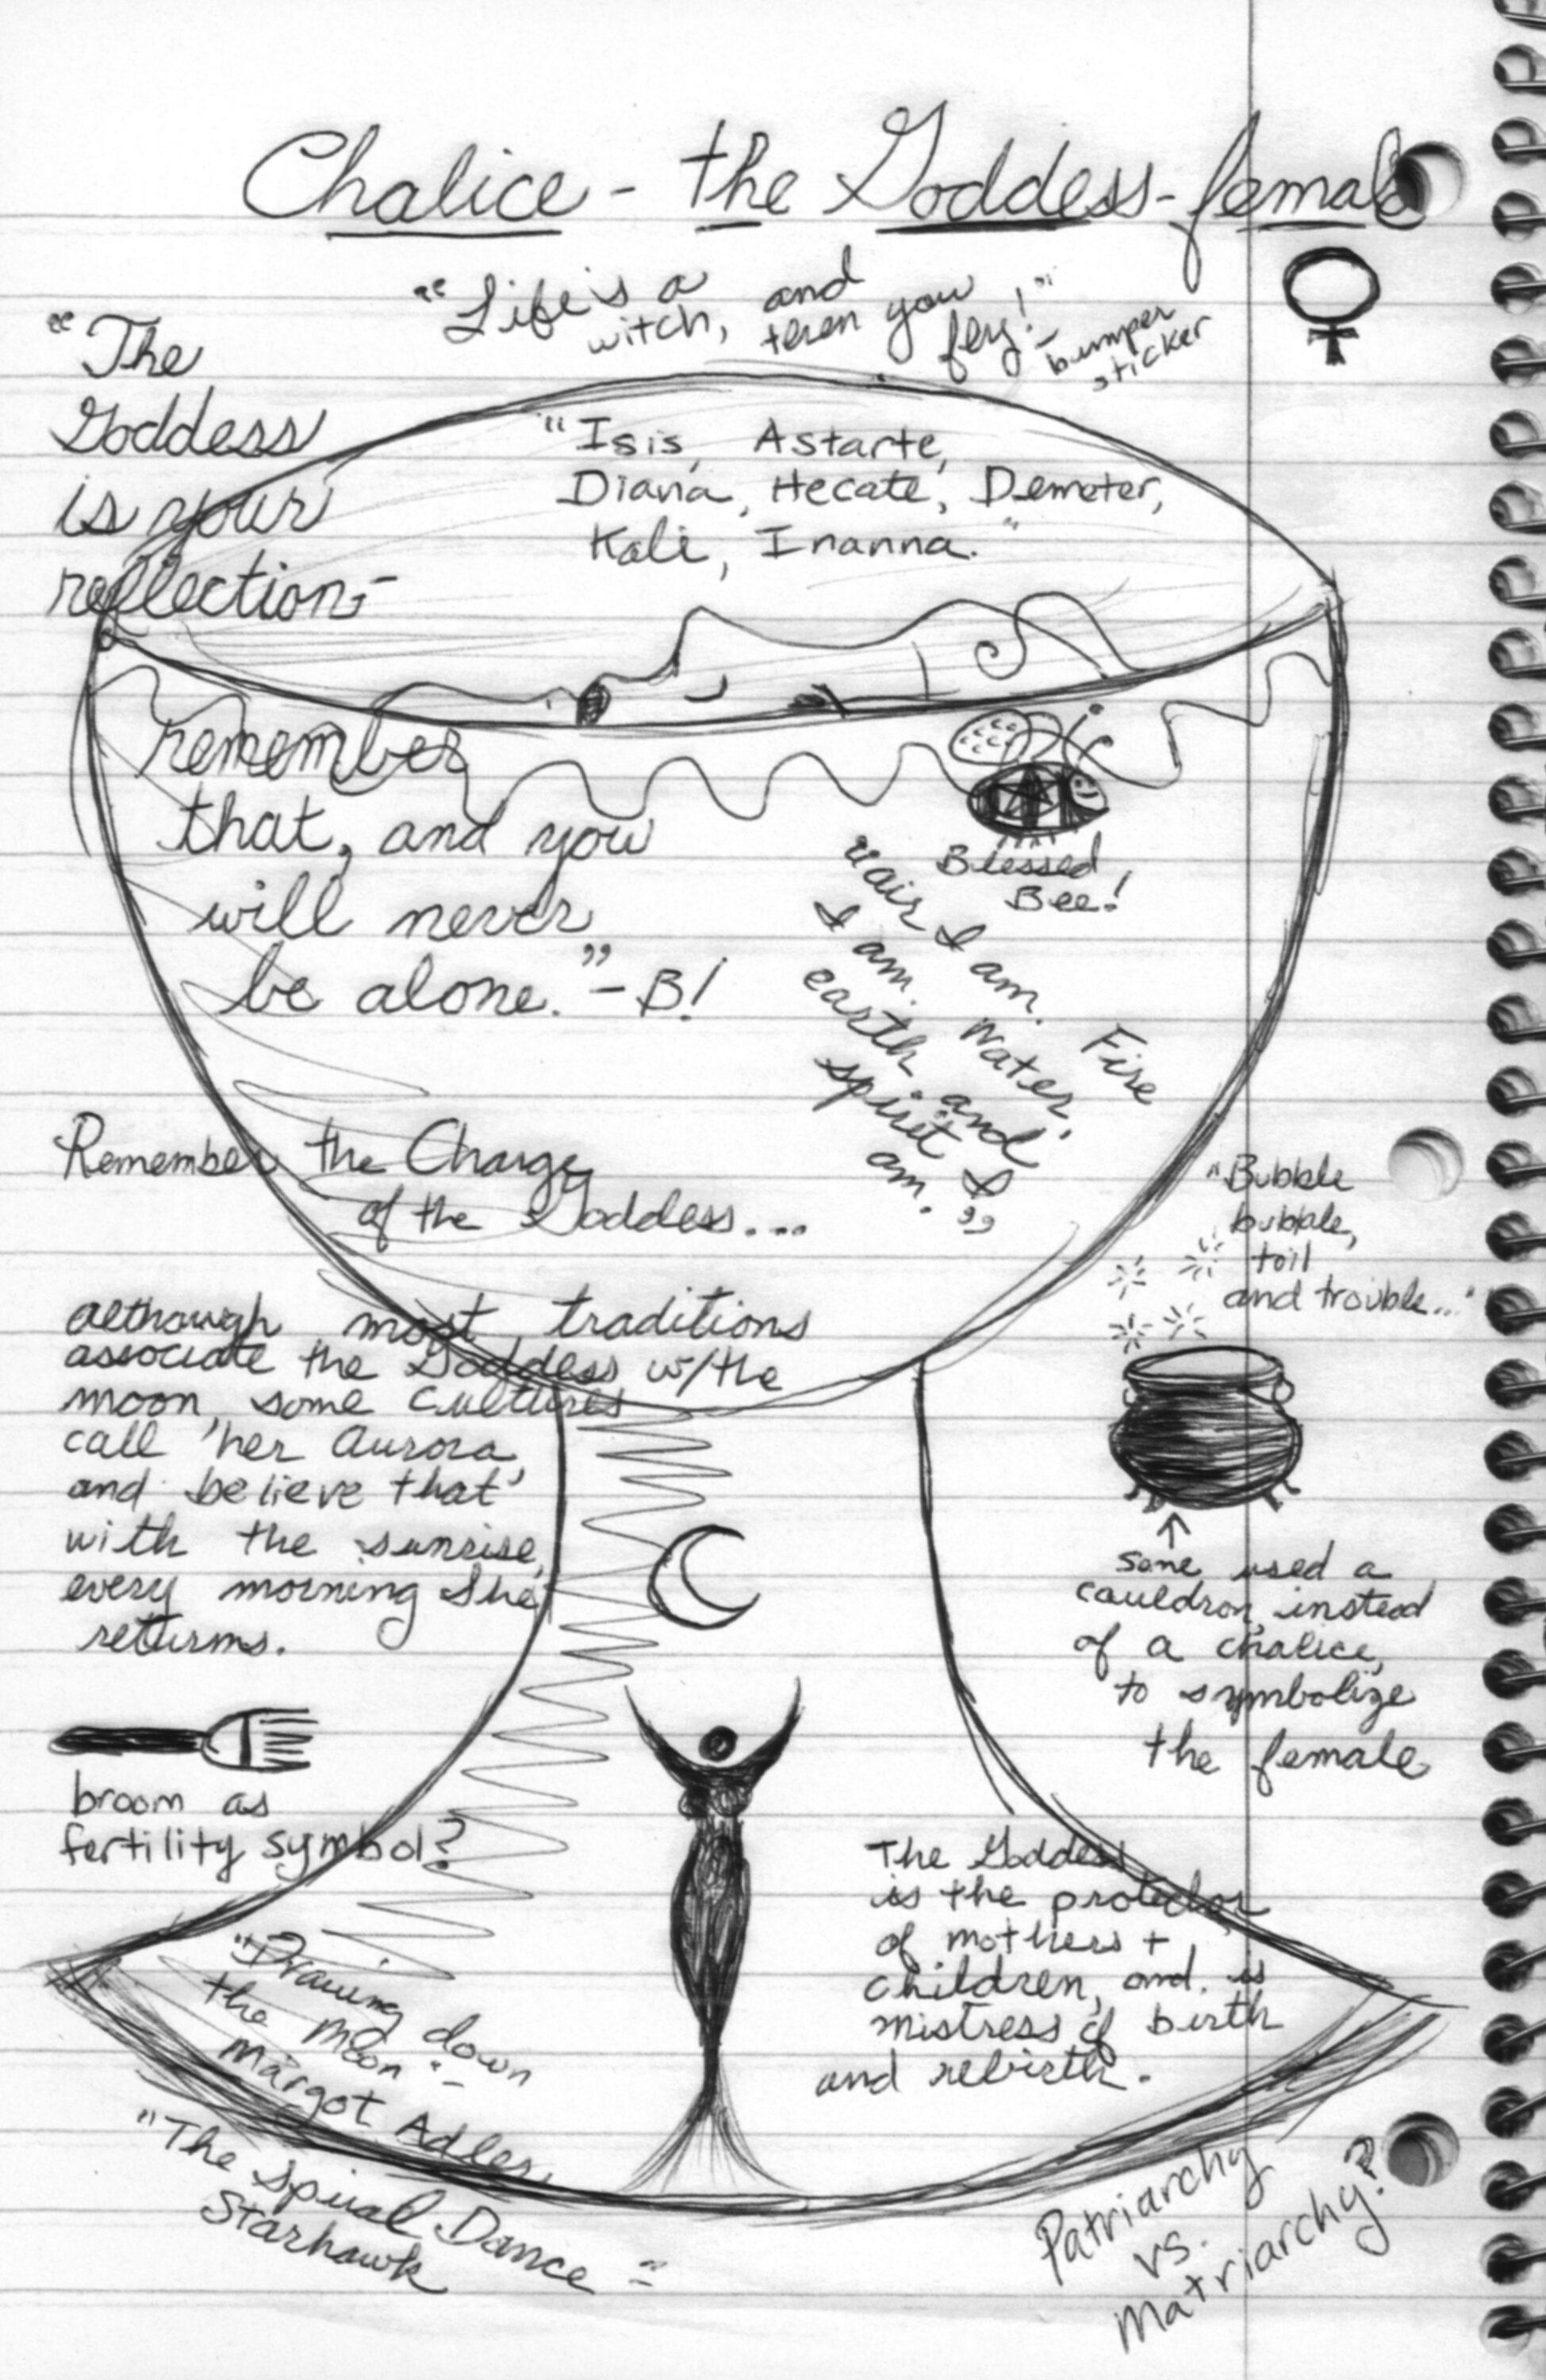 Chalice - the Goddess - female
"Life is a witch, and then you fly!" -
bumper
sticker
"The
Goddess
is your
reflection -
remember
that, and you
will never
be alone." - B!
"Isis, Astarte,
Diana, Hecate, Demeter,
Kali, Inanna."
Blessed
Bee!
"air I am. Fire
I am. Water,
earth and
spirit I
am."
Remember the Charge
of the Goddess....
"Bubble
bubble,
toil
and trouble..."
although most traditions
associate the Goddess w/the
moon, some cultures
call her Aurora,
and believe that
with the sunrise,
every morning She
returns.
some used a
cauldron, instead
of a chalice,
to symbolize
the female
broom as
fertility symbol?
The Goddess
is the protector
of mothers +
children, and is
mistress of birth
and rebirth.
"Drawing down
the Moon" -
Margot Adler
"The Spiral Dance" -
Starhawk
Patriarchy
vs.
Matriarchy?